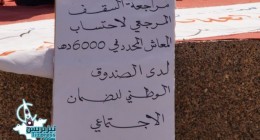 مراجعة السقف
المرجعي لاحتساب
المعاش المحدد في 6000 دهـ
لدى الصندوق
الوطني للضمان
الاجتماعي